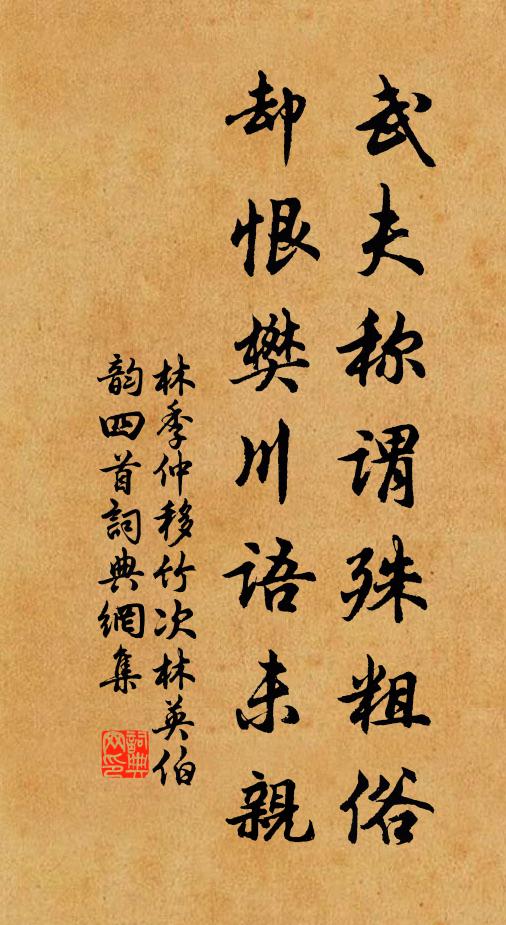 武夫称谓殊粗俗
却恨樊川语未親
林季仲移竹次林英伯
韵四首詞典網集
詞典網印